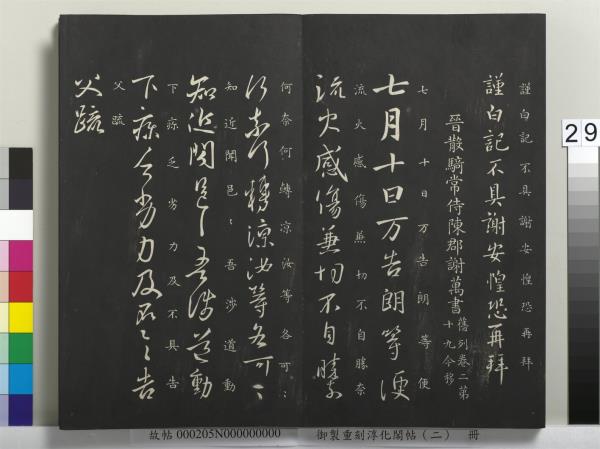 謹白記不具謝安惶恐再拜
謹白記不具謝安惶恐再拜
晉散騎常侍陳郡謝萬書
舊列卷二第
十九今移
七月十日万告朗等便
七月十日万告朗等便
流火感傷蒹切不自勝奈
流火感傷兼切不自勝奈
何奈何轉凉汝等各可〻
何奈何轉凉汝等各可〻
知近聞邑〻吾涉道動
知近聞邑〻吾涉道動
下疢乏劣力及不具告
下疢乏劣力及不具告
父疏
父疏
29
故帖 000205N000000000 御製重刻淳化閣帖（二） 冊